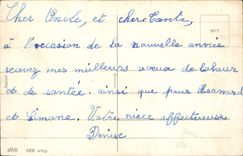 Cher Oncle, et chère Tante,
à l'occasion de la nouvelle année
recevez mes meilleurs vœux de bonheur
et de santée. ainsi que pour Bernard
et Simone. Votre nièce affectueuse
Denise